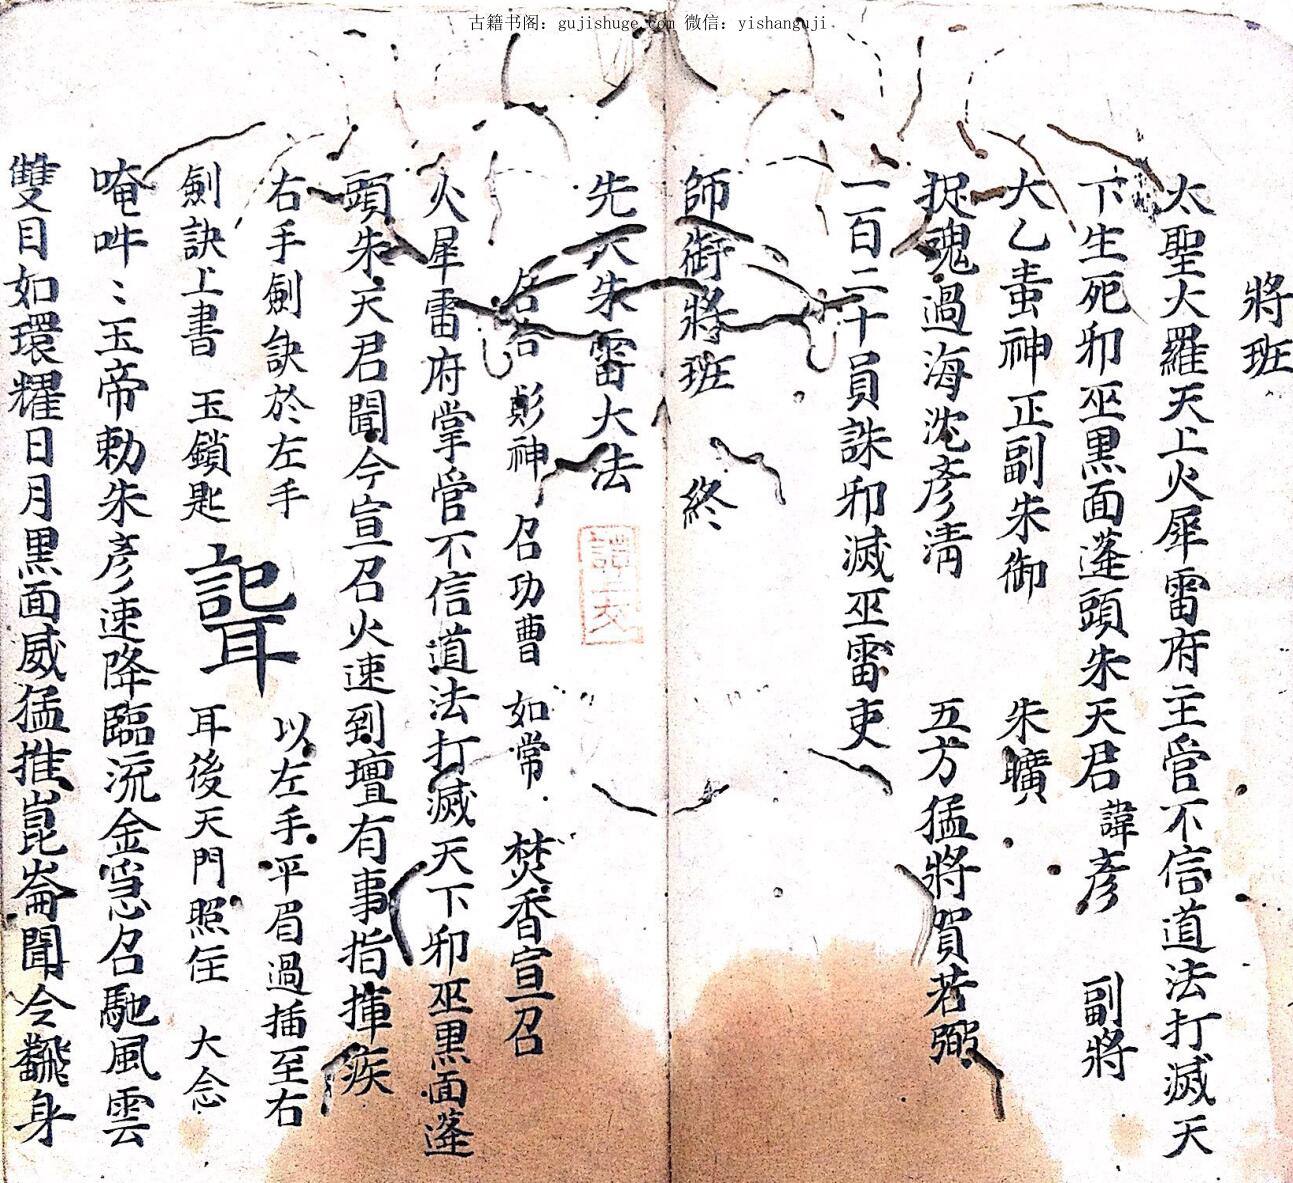 古籍书阁：gujishuge.com 微信：yishanguji
將班
太聖大羅天上火犀雷府主管不信道法打滅天
下生死卭巫黒面蓬頭朱天君諱彥 副將
大乙𧊵神正副朱御 朱曠
捉魂過海沈彥清 五方猛將賀若弼
一百二十員誅卭滅巫雷吏
師衙將班 終
先天朱雷大法
各吞 彭神 召功曹 如常 焚香宣召
火犀雷府掌管不信道法打滅天下卭巫黒面蓬
頭朱天君聞今宣召火速到壇有事指揮疾
右手劍訣於左手 以左手平眉過插至右
劍訣上書 玉鎖匙 耳後天門照住 大念
唵吽〻玉帝勅朱彥速降臨流金急召馳風雲
雙目如環耀日月黒面威猛推崑崙聞令飜身